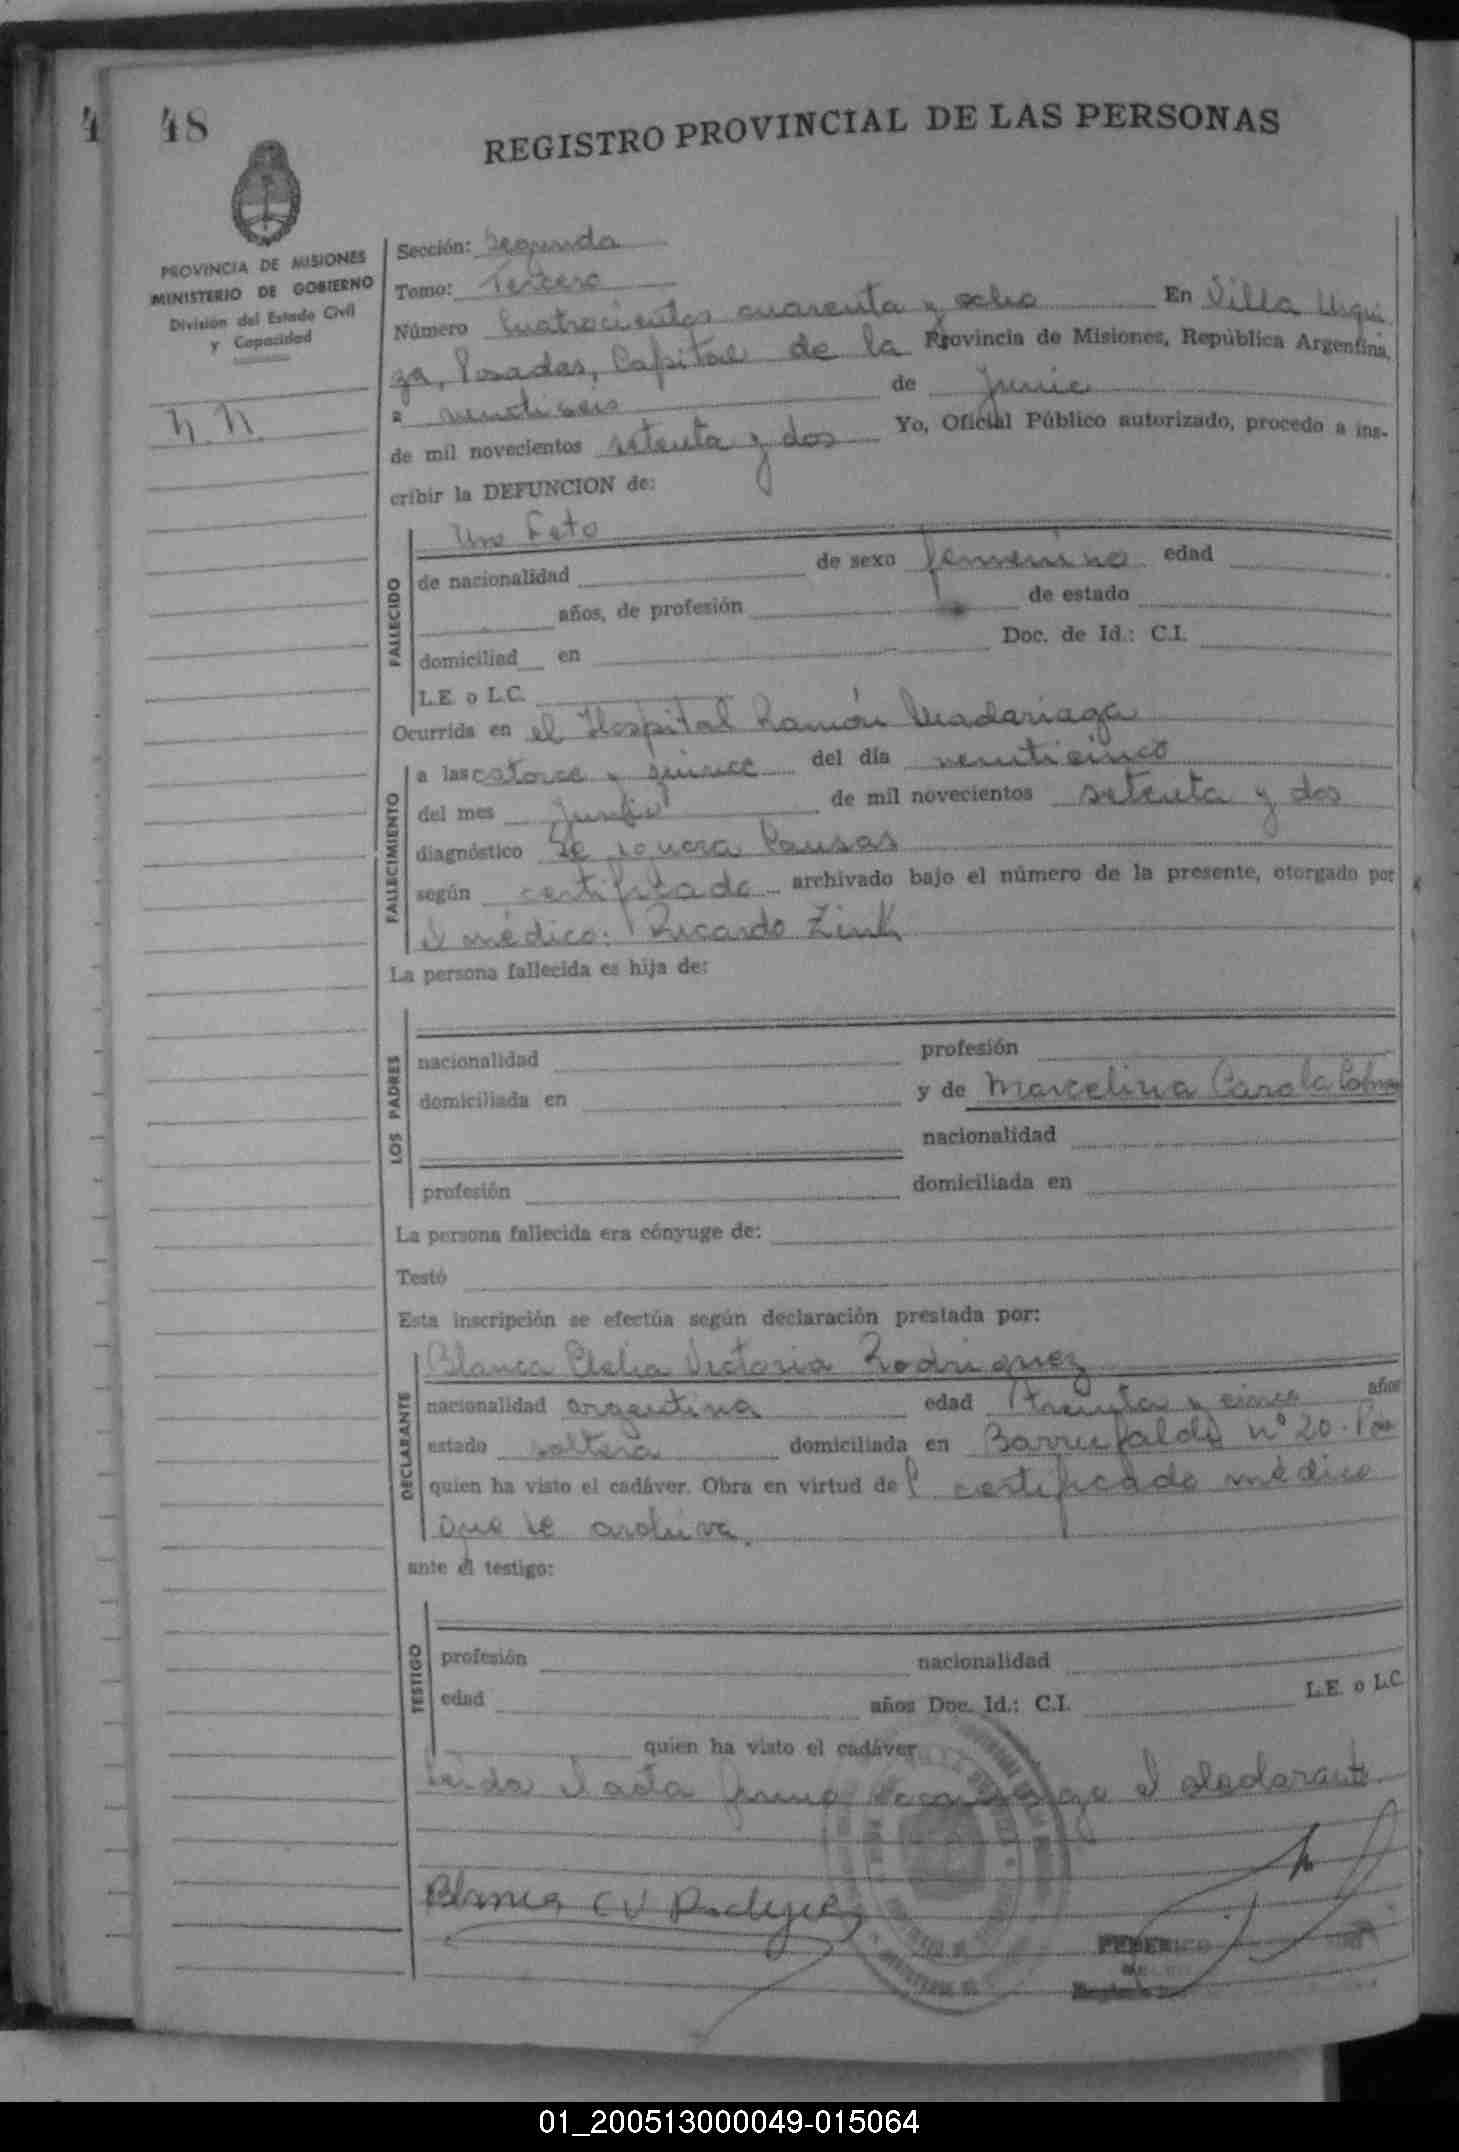 48
REGISTRO PROVINCIAL DE LAS PERSONAS
PROVINCIA DE MISIONES
MINISTERIO DE GOBIERNO
División del Estado Civil
y Capacidad
N. N.
Sección: Segunda
Tomo: Tercero
Número Cuatrocientos cuarenta y ocho En Villa Urqui
za, Posadas, Capital de la Provincia de Misiones, República Argentina,
a veintiseis de Junio
de mil novecientos setenta y dos Yo, Oficial Público autorizado, procedo a ins-
cribir la DEFUNCION de:
FALLECIDO
Un Feto
de nacionalidad de sexo femenino edad
años, de profesión de estado
domiciliad en Doc. de Id.: C.I.
L.E. o L.C.
Ocurrida en el Hospital Ramón Madariaga
FALLECIMIENTO
a las catorce y quince del día veinticinco
del mes Junio de mil novecientos setenta y dos
diagnóstico Se ignora Causas
según certificado archivado bajo el número de la presente, otorgado por
el médico: Ricardo Zink
La persona fallecida es hija de:
LOS PADRES
nacionalidad profesión
domiciliada en y de Marcelina Carola
nacionalidad
profesión domiciliada en
La persona fallecida era cónyuge de:
Testó
Esta inscripción se efectúa según declaración prestada por:
DECLARANTE
Blanca Clelia Victoria Rodriguez
nacionalidad argentina edad treinta y cinco años
estado soltera domiciliada en nº 20.
quien ha visto el cadáver. Obra en virtud de l certificado médico
que se archiva.
ante el testigo:
TESTIGO
profesión nacionalidad
edad años Doc. Id.: C.I. L.E. o L.C.
quien ha visto el cadáver
Leida el acta firma conmigo el declarante
Blanca C V
FEDERICO
01_200513000049-015064